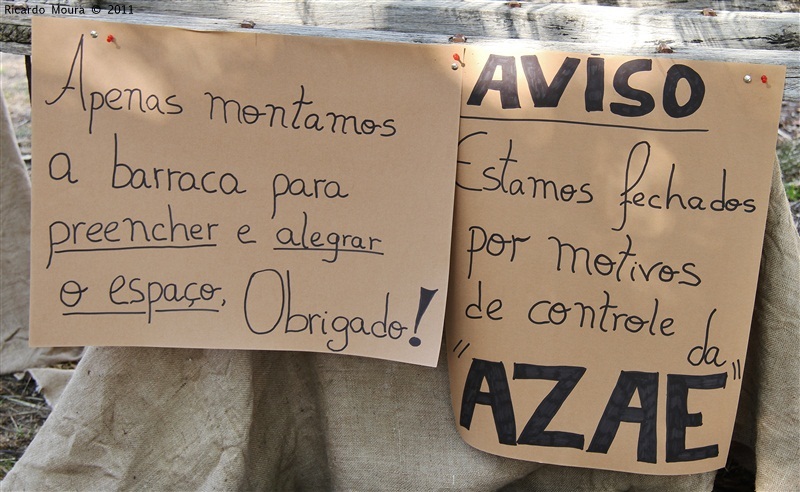 Ricardo Moura © 2011
Apenas montamos
a barraca para
preencher e alegrar
o espaço. Obrigado!
AVISO
Estamos fechados
por motivos
de controle da
"AZAE"